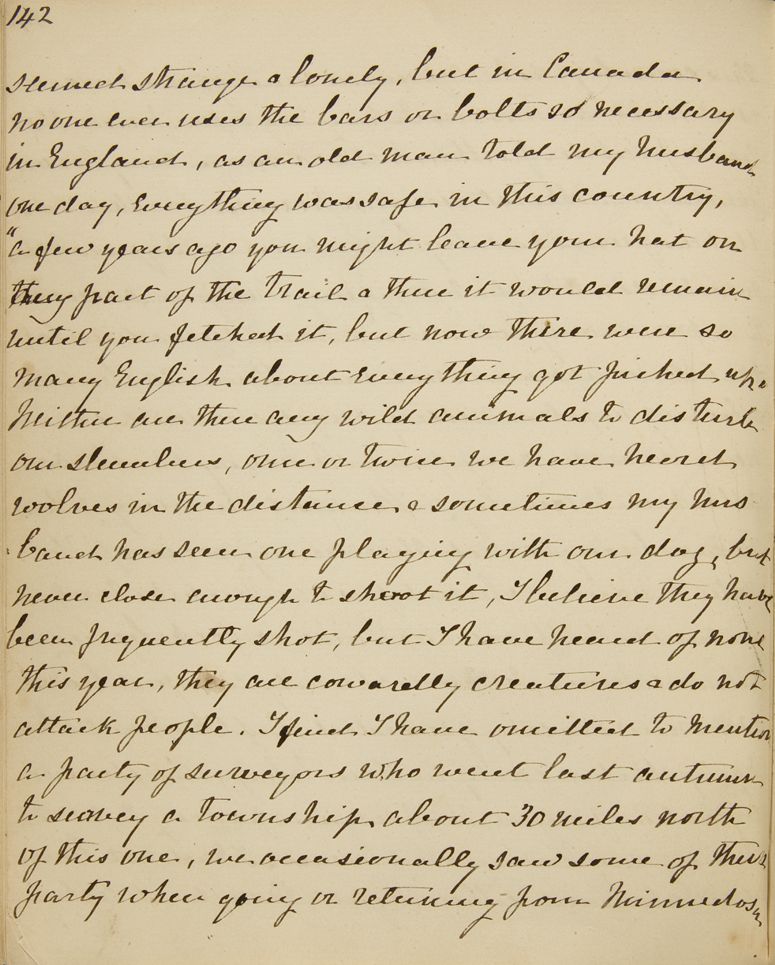 142
seemed strange & lonely, but in Canada
no one ever uses the bars or bolts so necessary
in England, as an old man told my husband
one day, everything was safe in this country,
"a few years ago you might leave your hat on
any part of the trail & there it would remain
until you fetched it, but now there were so
many English about everything got picked up."
Neither are there any wild animals to disturb
our slumbers, once or twice we have heard
wolves in the distance & sometimes my hus
band has seen one playing with our dog, but
never close enough to shoot it, I believe they have
been frequently shot, but I have heard of none
this year, they are cowardly creatures & do not
attack people. I find I have omitted to mention
a party of surveyors who went last autumn
to survey a township about 30 miles north
of this one, we occasionally saw some of their
party when going or returning from Minnedosa